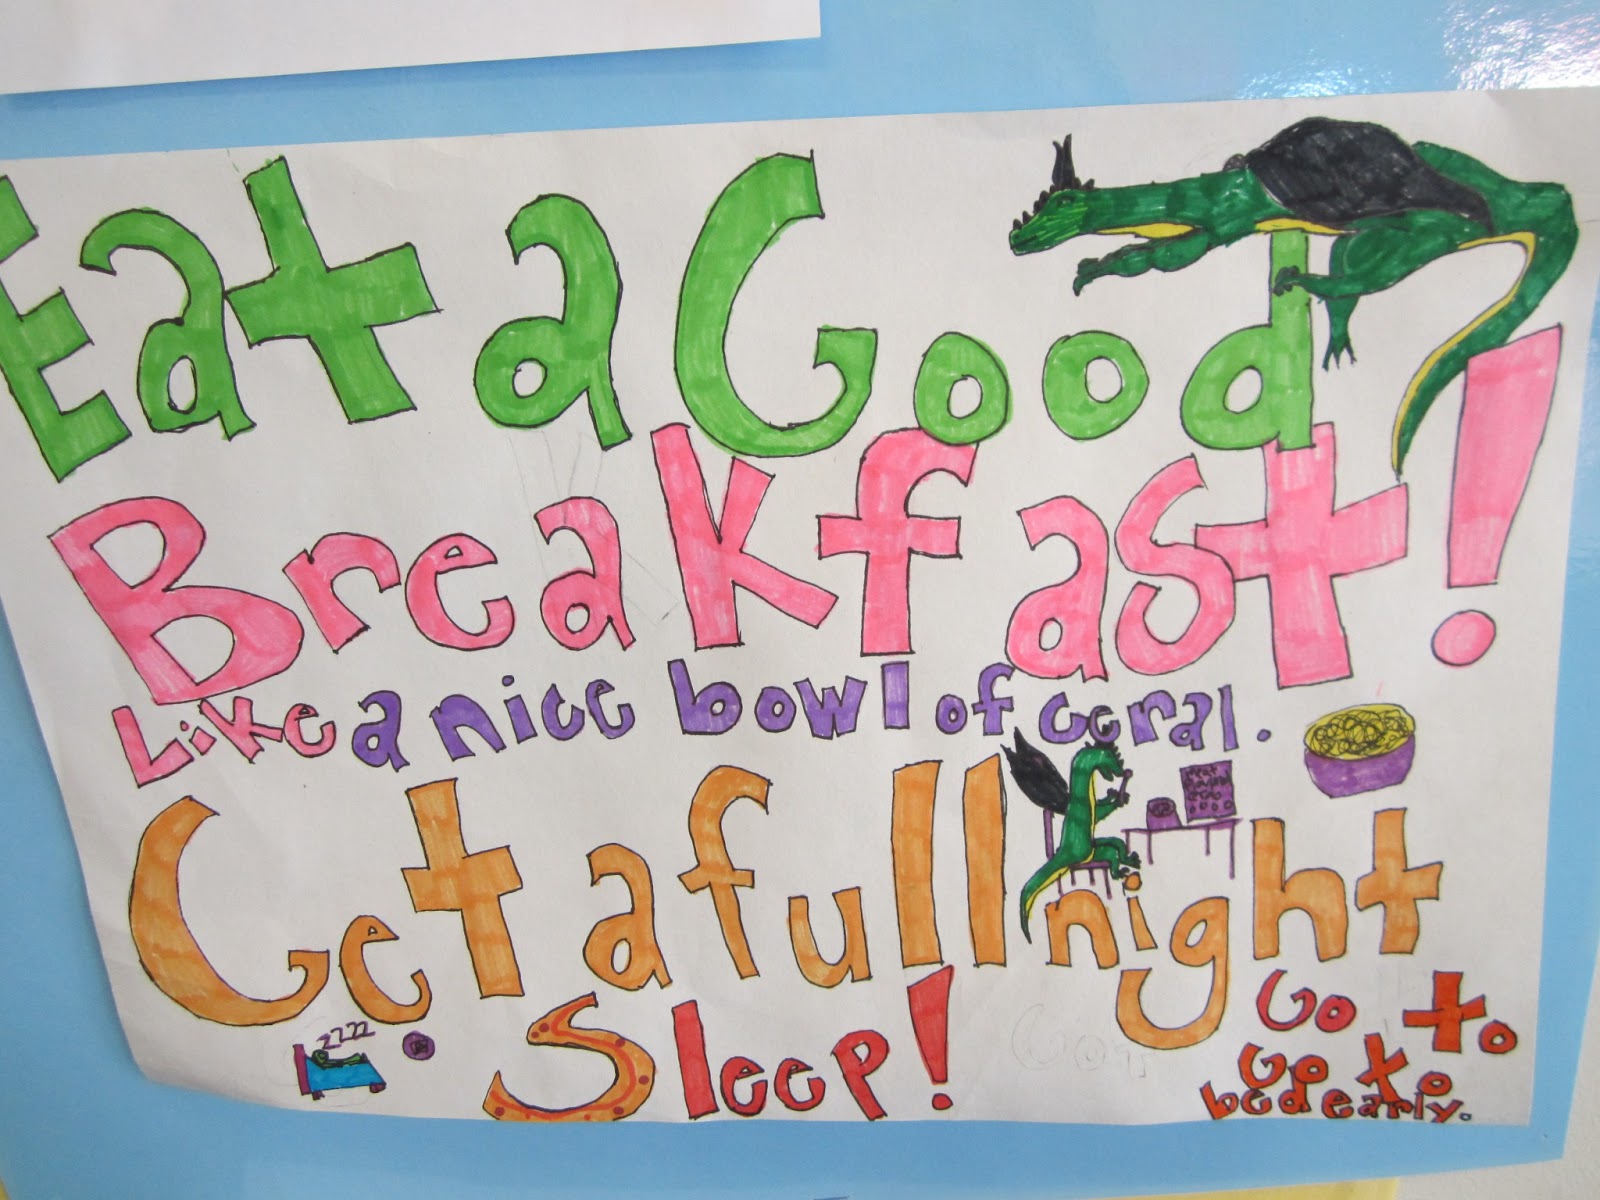 Eat a Good
Breakfast!
Like a nice bowl of ceral.
Get a full night
Sleep!
zzzz
Go to
Go to
bed early.